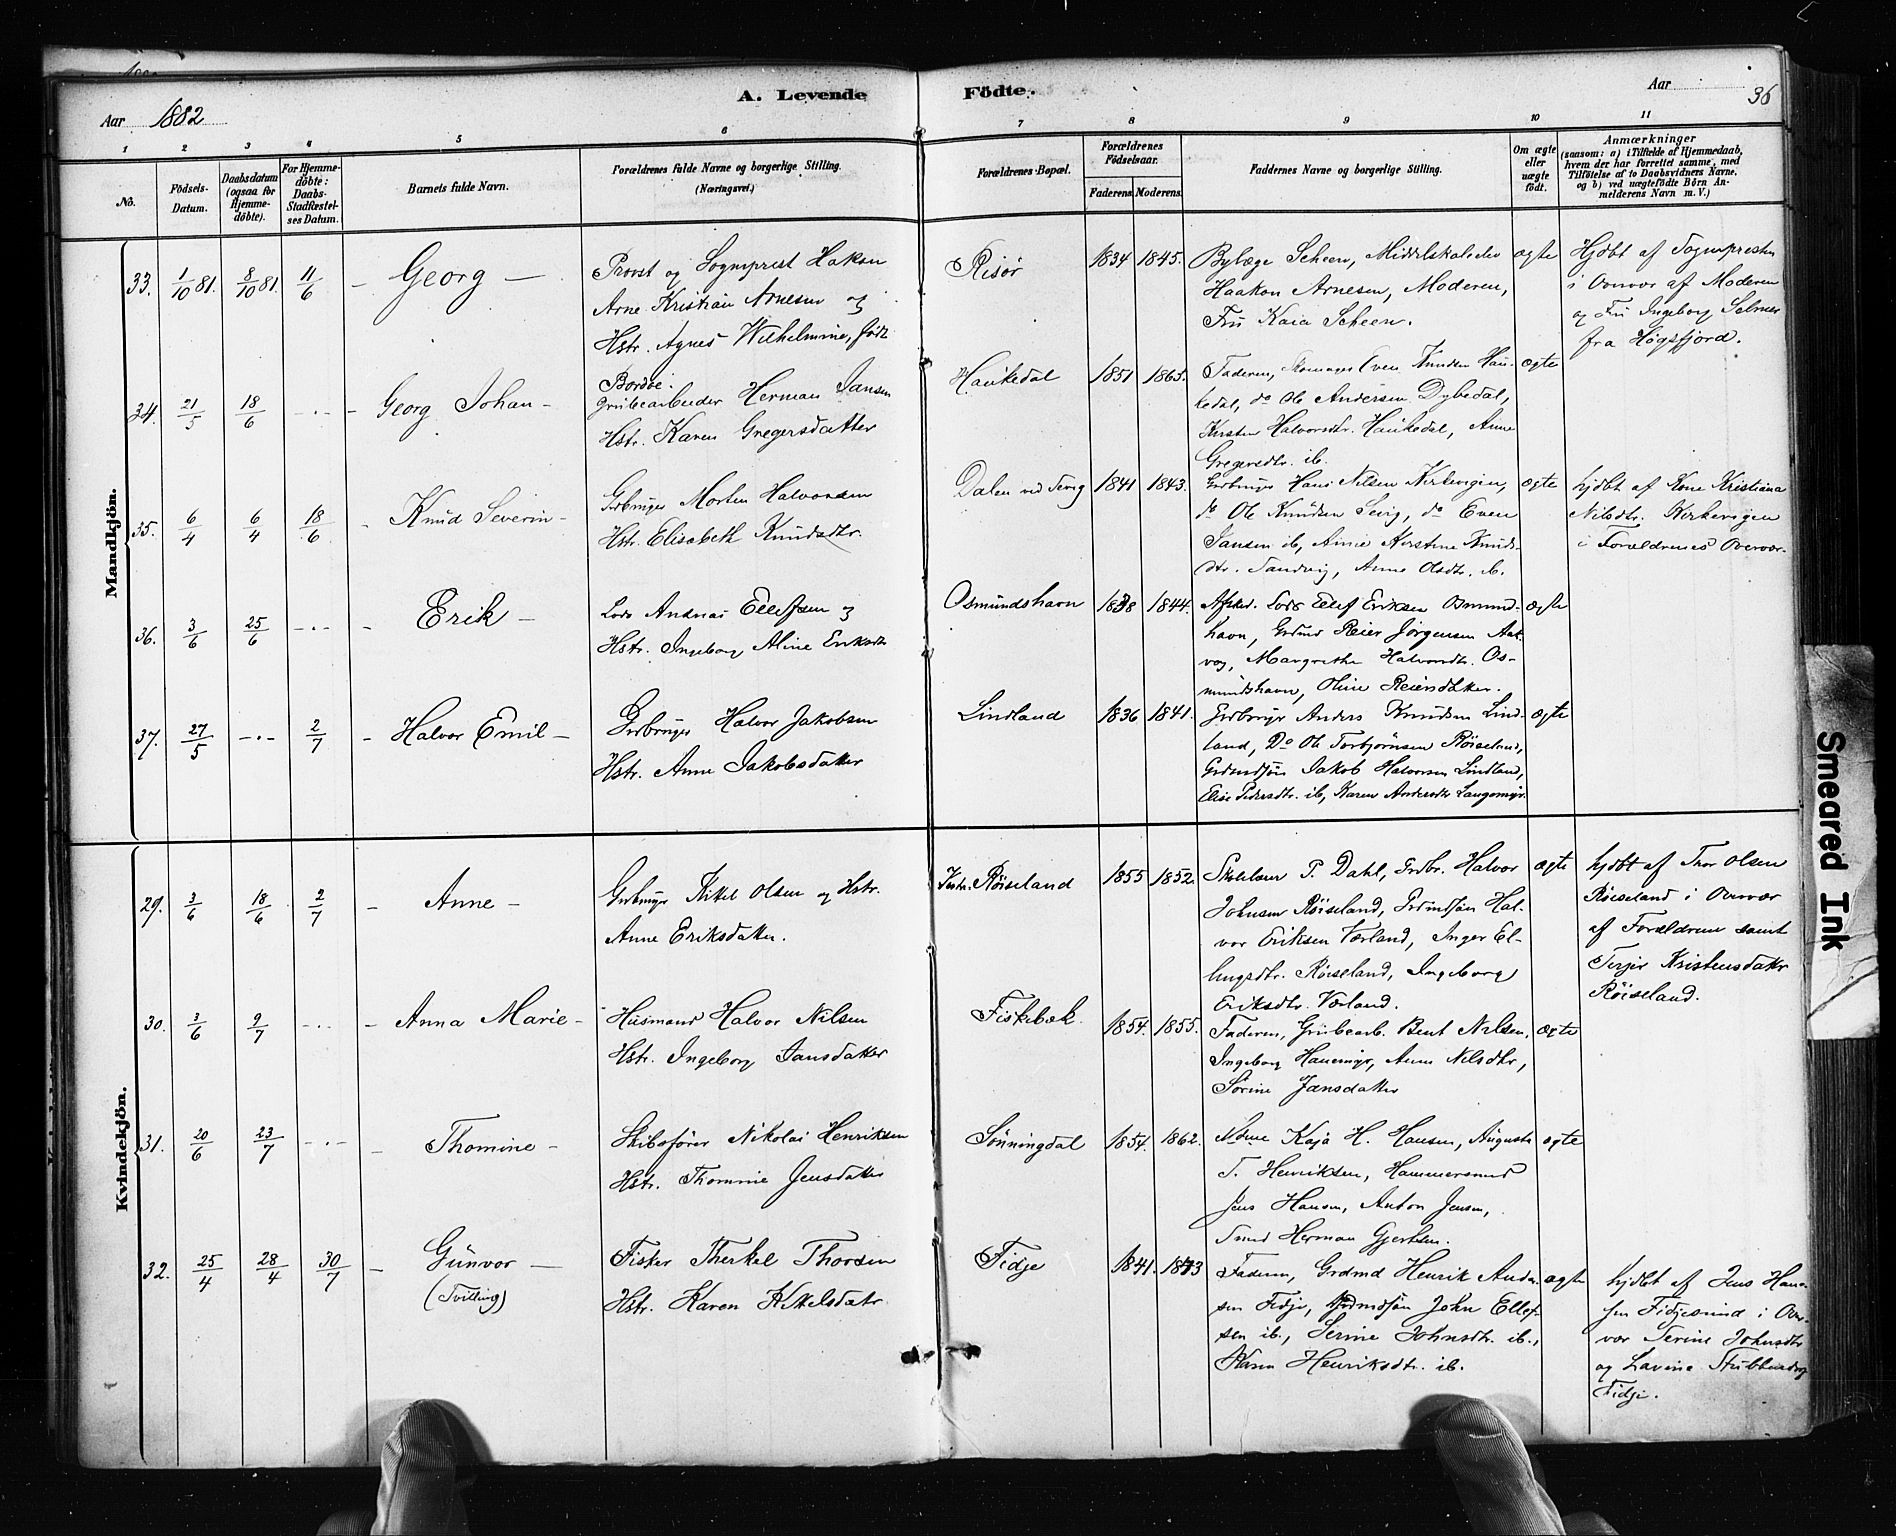 A. Levende Födte.
Aar 1882
Aar
36
1 2 3 4 5 6 7 8 9 10 11
No.
Födsels-Datum.
Daabsdatum (ogsaa for Hjemmedöbte).
For Hjemmedöbte: Daabs-Stadfæstelses Datum.
Barnets fulde Navn.
Forældrenes fulde Navne og borgerlige Stilling. (Næringsvei.)
Forældrenes Bopæl.
Forældrenes Födselsaar.
Faderens Moderens
Faddernes Navne og borgerlige Stilling.
Om ægte eller uægte födt.
Anmærkninger
(saasom: a) i Tilfælde af Hjemmedaab, hvem der har forrettet samme, med Tilföielse af to Daabsvidners Navne, og b) ved uægtefödte Börn Anmelderens Navn m. V.)
Mandkjön.
33. 1/10 81. 8/10 81. 11/6 – Georg –
Provst og Sogneprest Hakon
Arne Kristian Arnesen og
Hstr. Agnes Wilhelmine, født
Bordoe.
Risør 1834 1845.
Bylæge Scheen, Middelskolelev
Haakon Arnesen, Moderen,
Fru Kaia Scheen.
ægte
Hjdbt af Sognepresten
i Overvær af Moderen
og Fru Ingeborg Selmer
fra Høgsfjord.
34. 21/5 18/6 – Georg Johan –
Grubearbeider Herman Jansen
Hstr. Karen Gregersdatter
Haukedal 1851 1865.
Faderen, Skomager Even Knudsen Hau-
kedal, do Ole Andersen Dybedal,
Kirsten Halvorsdtr. Haukedal, Anne
Gregersdtr. ib.
ægte
35. 6/4 6/4 18/6 – Knud Severin –
Grdbruger Morten Halvorsen
Hstr. Elisabeth Knudsdtr.
Dalen ved Sevig 1841 1843.
Grdbruger Hans Nilsen Kirkevigen,
do Ole Knudsen Sevig, do Even
Jansen ib, Anne Kirstine Knuds-
dtr. Sandvig, Anne Olsdtr. ib.
ægte
hjdbt af Kone Kristiana
Nilsdtr. Kirkevigen
i Forældrenes Overvær.
36. 3/6 25/6 – Erik –
Lods Andreas Ellefsen og
Hstr. Ingeborg Aline Eriksdtr
Osmundshavn 1838 1844.
Afsked. Lods Ellef Eriksen Osmund-
havn, Grdmd Reier Jørgensen Aak-
vog, Margrethe Halvorsdtr. Os-
mundshavn, Oline Reiersdatter.
ægte
37. 27/5 2/7 – Halvor Emil –
Grdbruger Halvor Jakobsen
Hstr. Anne Jakobsdatter
Lindland 1836 1841.
Grdbruger Anders Knudsen Lind-
land, Do Ole Torbjørnsen Røiseland,
Grdmdsøn Jakob Halvorsen Lindland,
Elise Pedersdtr. ib, Karen Andersdtr Langemyr.
ægte
Kvindekjön.
29. 3/6 18/6 2/7 – Anne –
Grdbruger Kikel Olsen og Hstr.
Anne Eriksdatter.
Røiseland 1855 1852.
Skolelærer T. Dahl, Grdbr. Halvor
Johnsen Røiseland, Grdmdsøn Hal-
vor Eriksen Værland, Inger El-
lingsdtr. Røiseland, Ingeborg
Eriksdtr. Værland.
ægte
hjdbt af Thor Olsen
Røiseland i Overvær
af Forældrene samt
Terjer Kristensdatr
Røiseland.
30. 3/6 9/7 – Anna Marie –
Husmand Halvor Nilsen
Hstr. Ingeborg Jansdatter
Fiskebæk 1854. 1855.
Faderen, Grubearb. Bent Nilsen,
Ingeborg Hanemyr, Anne Nilsdtr,
Sørine Jansdatter
ægte
31. 20/6 23/7 – Thomine –
Skibsfører Nikolai Henriksen
Hstr. Thomine Jensdatter
Sønningdal 1854. 1862.
Kaja H. Hansen, Augusta
T. Henriksen, Hammersmed
Jens Hansen, Anton Jensen,
Smed Herman Gjertsen.
ægte
32. 25/4 28/4 30/7 – Gunvor –
(Tvilling)
Fisker Therkel Thorsen
Hstr. Karen Kikelsdatr
Fidje 1841. 1843
Faderen, Grdmd Henrik Ander-
sen Fidje, Grdmdsøn John Ellef-
sen ib., Serine Johnsdtr. ib.,
Karen Henriksdtr. ib.
ægte
hjdbt af Jens Han-
sen Fidjesund i Over-
vær Serine Johnsdtr
og Lavine
Fidje.
Smeared Ink